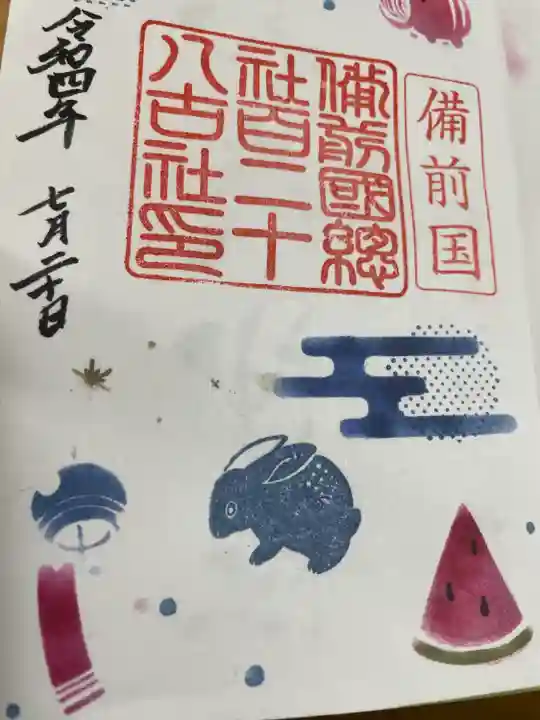 備前国
備前國總
社百二十
八古社印
令和四年 七月二十日